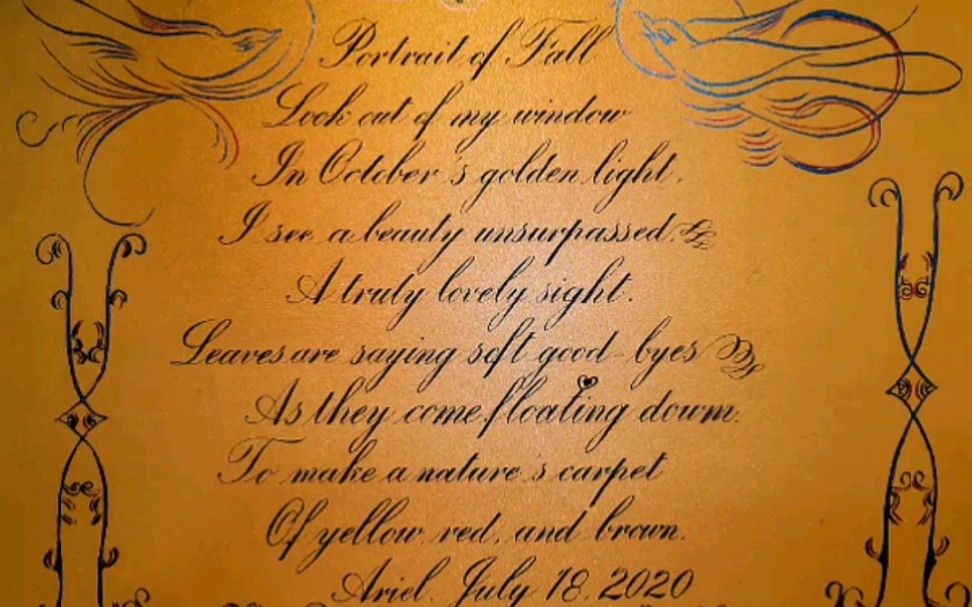 Portrait of Fall
Look out of my window
In October's golden light.
I see a beauty unsurpassed.
A truly lovely sight.
Leaves are saying soft good-byes
As they come floating down.
To make a nature's carpet
Of yellow, red, and brown.
Ariel. July 18, 2020